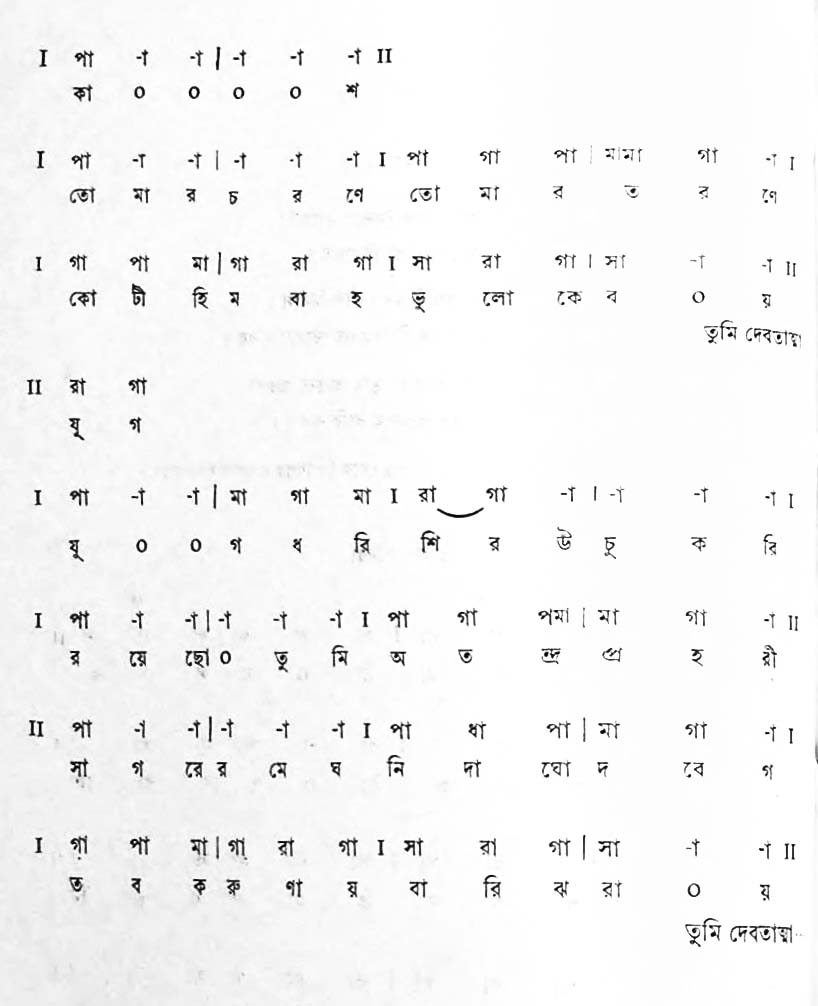 I পা -া -া | -া -া -া II
কা ০ ০ ০ ০ শ
I পা -া -া | -া -া -া I পা গা পা | মামা গা -া I
তো মা র চ র ণে তো মা র ত র ণে
I গা পা মা | গা রা গা I সা রা গা | সা -া -া II
কো টী হি ম বা হ ভূ লো কে ব ০ য়
তুমি দেবতায়া
II রা গা
যূ গ
I পা -া -া | মা গা মা I রা গা -া | -া -া -া I
যূ ০ ০ গ ধ রি শি র উ চু ক রি
I পা -া -া | -া -া -া I পা গা পমা | মা গা -া II
র য়ে ছো ০ তু মি অ ত ন্দ্র প্র হ রী
II পা -া -া | -া -া -া I পা ধা পা | মা গা -া I
সা গ রে র মে ঘ নি দা ঘো দ বে গ
I গা পা মা | গা রা গা I সা রা গা | সা -া -া II
ত ব ক রু ণা য় বা রি ঝ রা ০ য়
তুমি দেবতায়া